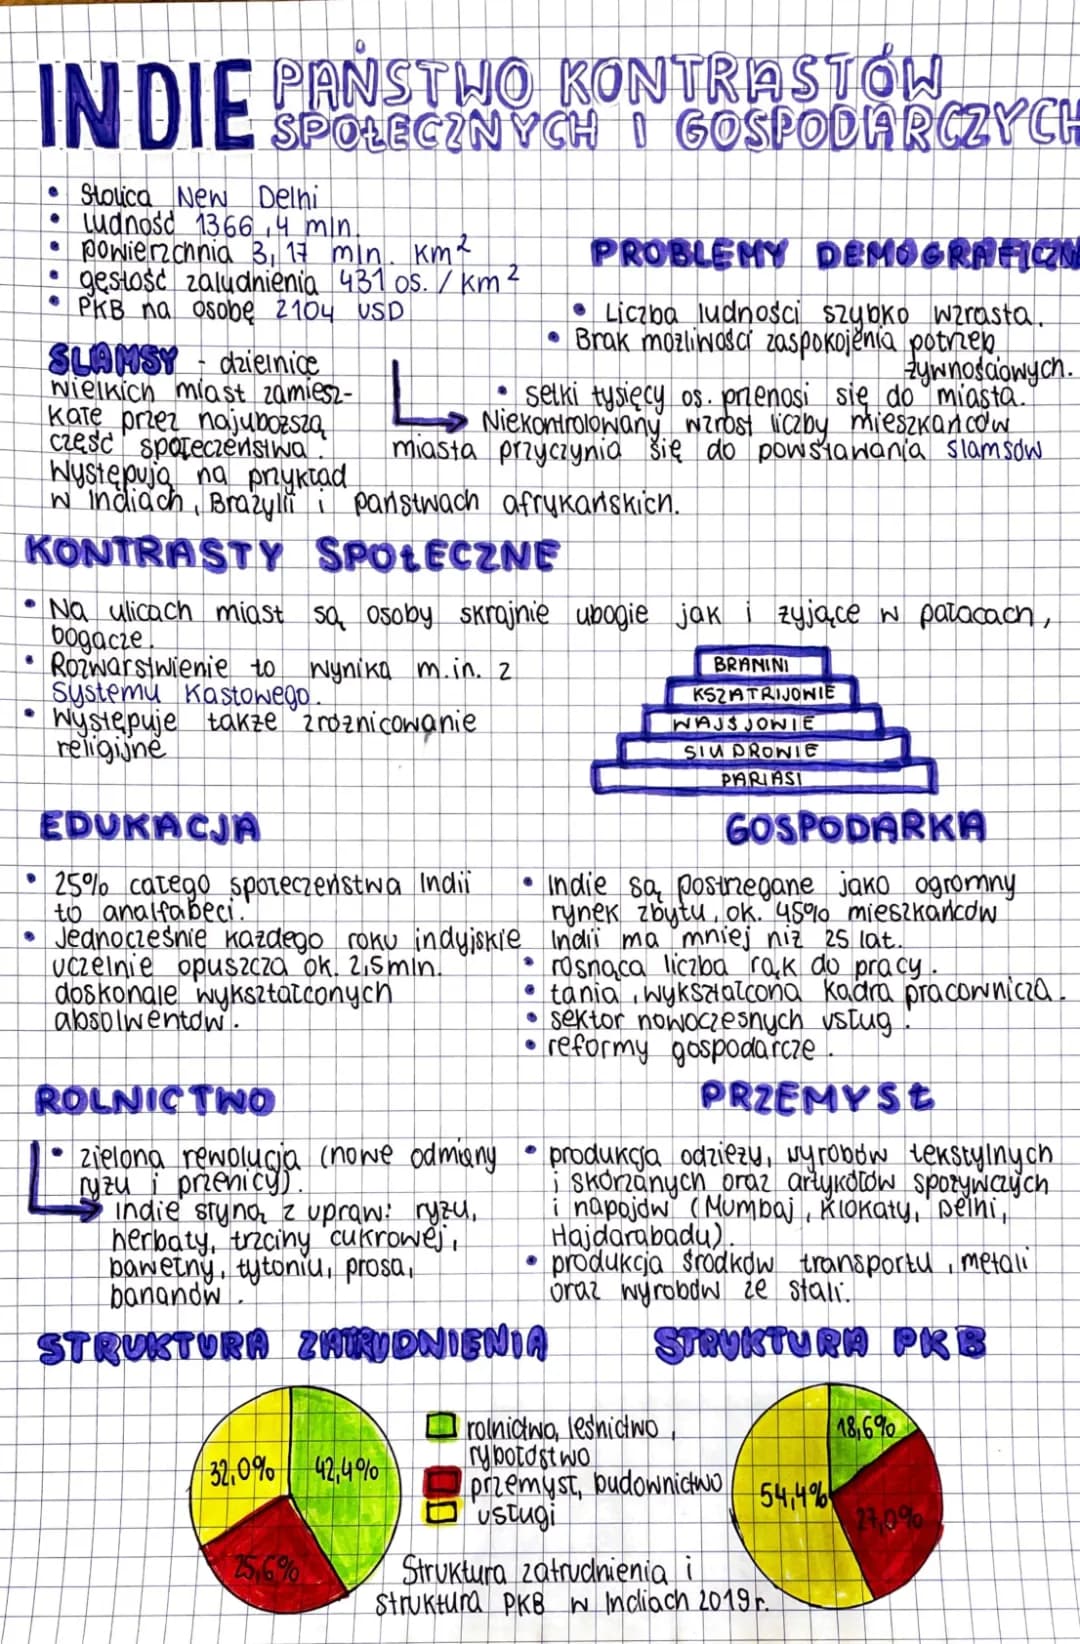 INDIE PAŃSTWO KONTRASTÓW
SPOŁECZNYCH I GOSPODARCZYCH
• Stolica New Delhi
• ludność 1366,4 mln.
• powierzchnia 3,17 mln. km²
• gęstość zaludnienia 431 os. / km²
• PKB na osobę 2104 USD
PROBLEMY DEMOGRAFICZN
• Liczba ludności szybko wzrasta.
• Brak możliwości zaspokojenia potrzeb
żywnościowych.
• setki tysięcy os. przenosi się do miasta.
Niekontrolowany wzrost liczby mieszkańców
miasta przyczynia się do powstawania slamsów
SLAMSY - dzielnice
wielkich miast zamiesz-
kałe przez najuboższą
część społeczeństwa.
Występują na przykład
w Indiach, Brazylii i państwach afrykańskich.
KONTRASTY SPOŁECZNE
• Na ulicach miast są osoby skrajnie ubogie jak i żyjące w pałacach,
bogacze.
• Rozwarstwienie to wynika m.in. z
systemu kastowego.
• Występuje także zróżnicowanie
religijne
BRAMINI
KSZATRIJOWIE
WAJSJOWIE
SIUDROWIE
PARIASI
EDUKACJA
• 25% całego społeczeństwa Indii
to analfabeci.
• Jednocześnie każdego roku indyjskie
uczelnie opuszcza ok. 2,5mln.
doskonale wykształconych
absolwentów.
GOSPODARKA
• Indie są postrzegane jako ogromny
rynek zbytu, ok. 45% mieszkańców
Indii ma mniej niż 25 lat.
• rosnąca liczba rąk do pracy.
• tania, wykształcona kadra pracownicza.
• sektor nowoczesnych usług.
• reformy gospodarcze.
ROLNICTWO
• zielona rewolucja (nowe odmiany
ryżu i pszenicy).
Indie słyną z upraw: ryżu,
herbaty, trzciny cukrowej,
bawełny, tytoniu, prosa,
bananów.
PRZEMYSŁ
• produkcja odzieży, wyrobów tekstylnych
i skórzanych oraz artykułów spożywczych
i napojów (Mumbaj, Klokaty, Delhi,
Hajdarabadu).
• produkcja środków transportu, metali
oraz wyrobów ze stali.
STRUKTURA ZATRUDNIENIA
32,0%
42,4%
25,6%
rolnictwo, leśnictwo,
rybołóstwo
przemysł, budownictwo
usługi
Struktura zatrudnienia i
struktura PKB w Indiach 2019r.
STRUKTURA PKB
18,6%
54,4%
27,0%